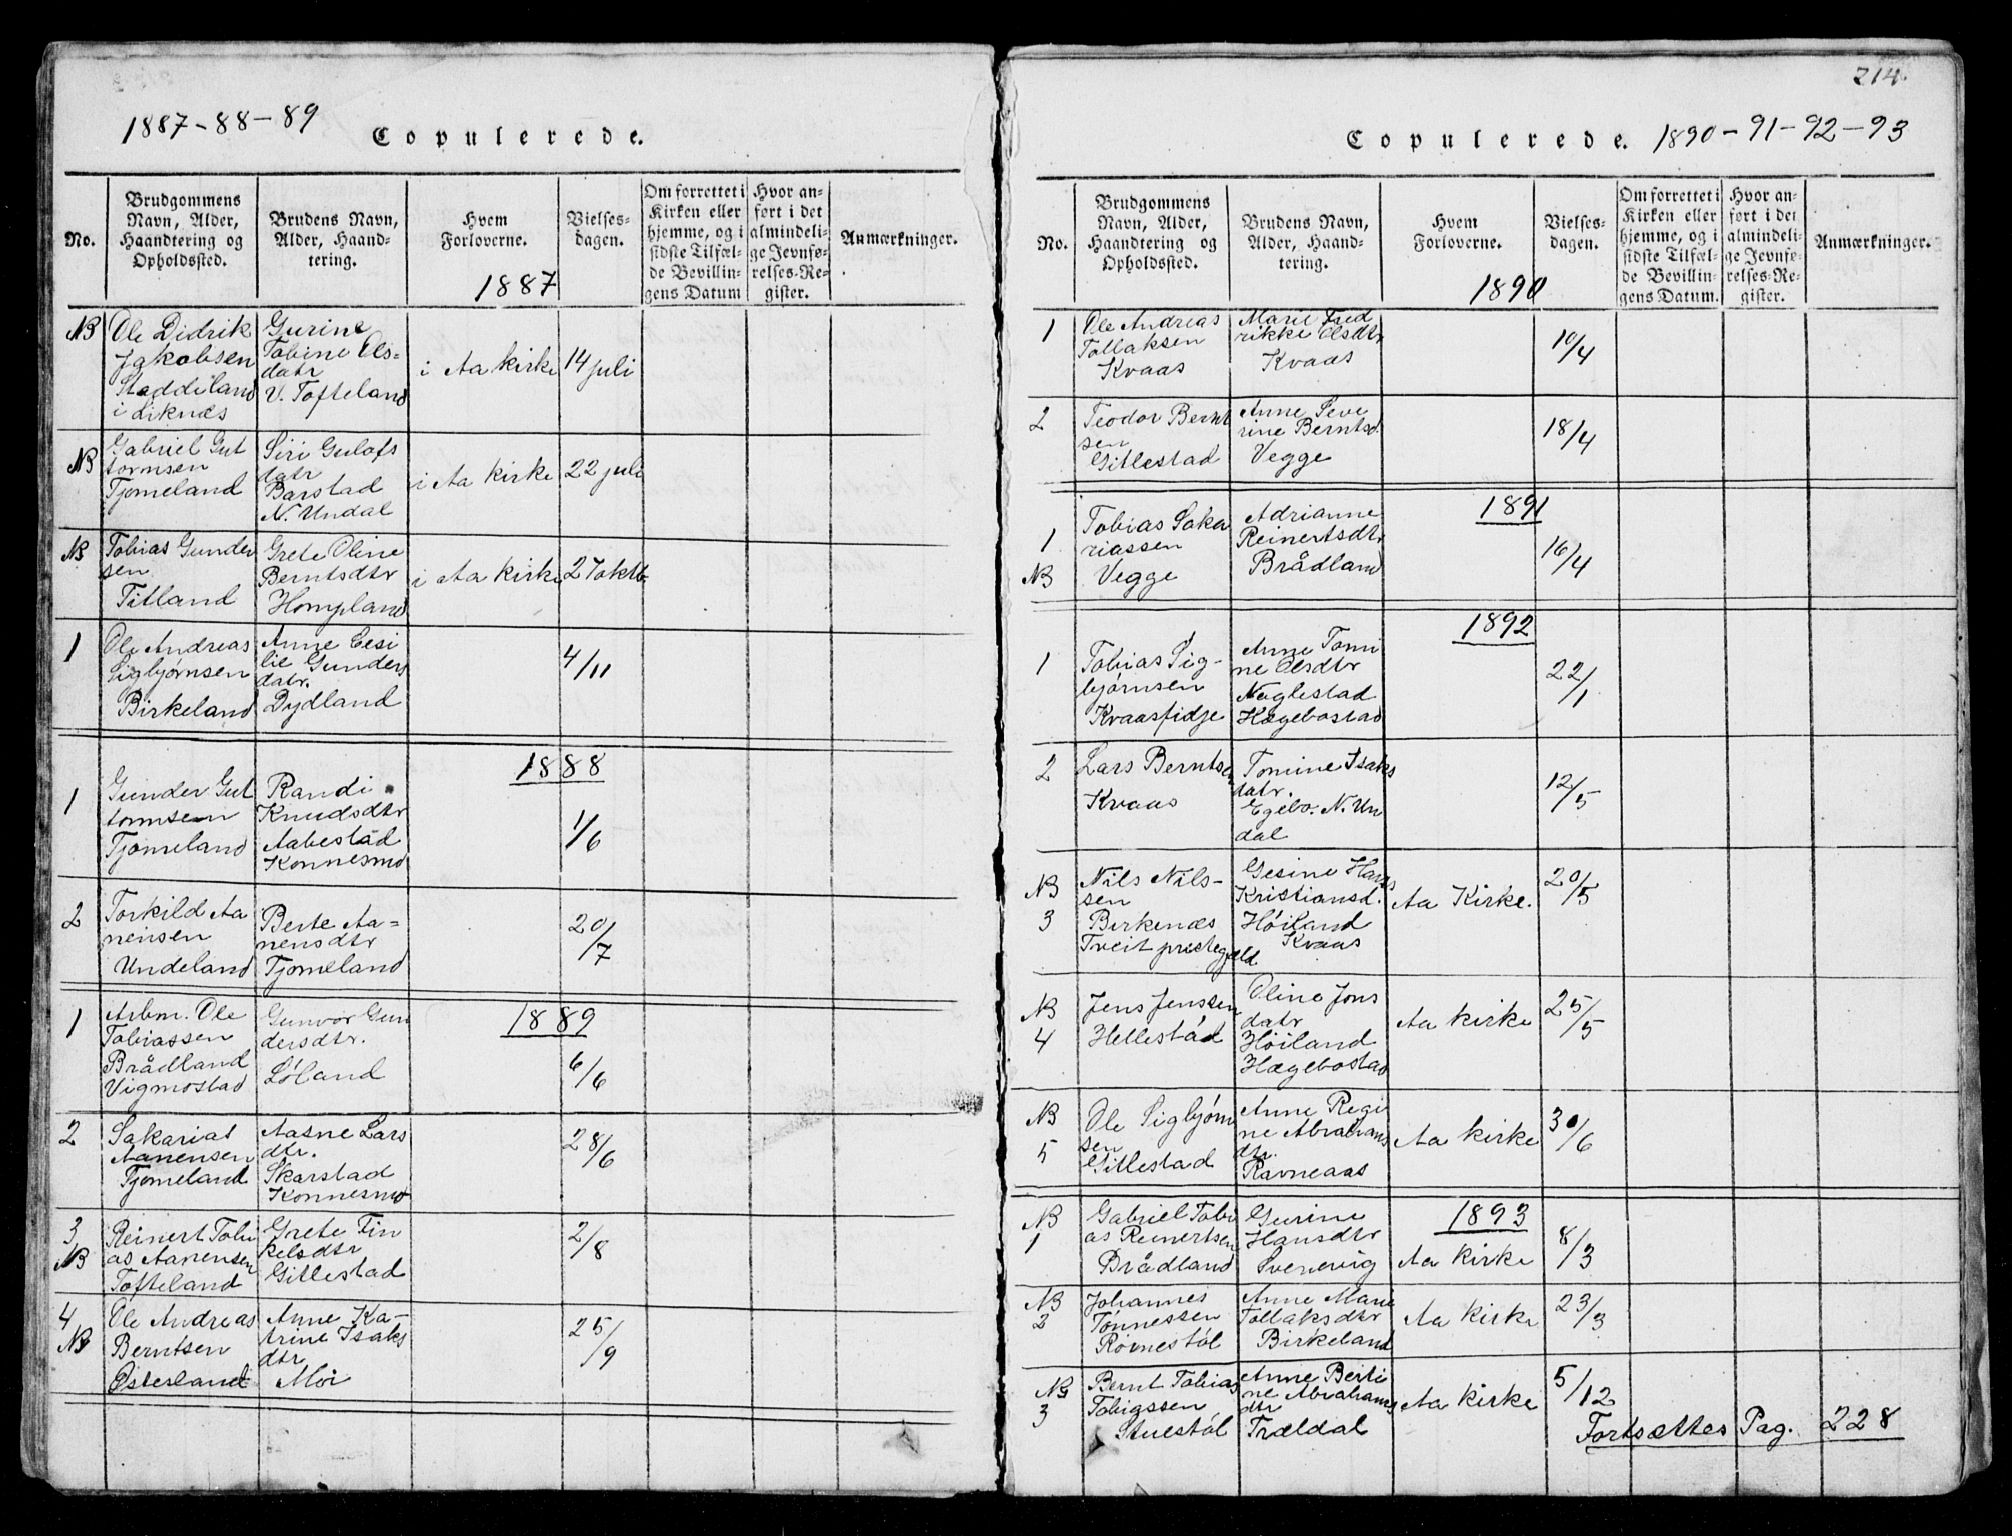 1887-88-89
Copulerede.
No.
Brudgommens
Navn, Alder,
Haandtering og
Opholdssted.
Brudens Navn,
Alder, Haand-
tering.
Hvem
Forloverne.
1887
Vielses-
dagen.
Om forrettet i
Kirken eller
hjemme, og i
sidste Tilfæl-
de Bevillin-
gens Datum
Hvor an-
ført i det
almindeli-
ge Jevnfø-
relses-Re-
gister.
Anmærkninger.
NB
Ole Didrik
Jakobsen
Staddeland
i Liknes
Gurine
Tobine Ols-
datr
V. Tofteland
i Aa kirke
14 juli
NB
Gabriel Gut
tormsen
Tjomeland
Siri Gulofs
datr
Barstad
N. Undal
i Aa kirke
22 juli
NB
Tobias Gunder
sen
Titland
Grete Oline
Berntsdtr
Hompland
i Aa kirke
27 oktb
1
Ole Andreas
Sigbjørnsen
Birkeland
Anne Cesi
lie Gunders
datr.
Dydland
4/11
1888
1
Gunder Gut
tormsen
Tjomeland
Randi
Knudsdtr
Aabestad
Konnesmo
1/6
2
Torkild Aa
nensen
Undeland
Berte Aa-
nensdtr
Tjomeland
20/7
1889
1
Arbm. Ole
Tobiassen
Brådland
Vigmostad
Gunvor Gun
dersdtr.
Løland
6/6
2
Sakarias
Aanensen
Tjomeland
Aasne Lars
dtr.
Skarstad
Konnesmo
28/6
3
NB
Reinert Tobi
as Aanensen
Tofteland
Grete Fin
kelsdtr
Gitlestad
2/8
4
NB
Ole Andreas
Berntsen
Østerland
Anne Ka-
trine Isaks
dtr
Moi
25/9
214.
Copulerede. 1890-91-92-93
No.
Brudgommens
Navn, Alder,
Haandtering og
Opholdssted.
Brudens Navn,
Alder, Haand-
tering.
Hvem
Forloverne.
1890
Vielses-
dagen.
Om forrettet i
Kirken eller
hjemme, og i
sidste Tilfæl-
de Bevillin-
gens Datum.
Hvor an-
ført i det
almindeli-
ge Jevnfø-
relses-Re-
gister.
Anmærkninger.
1
Ole Andreas
Tollaksen
Kvaas
Marie Fred
rikke Olsdtr
Kvaas
10/4
2
Teodor Bernt
sen
Gitlestad
Anne Seve
rine Berntsd.
Vegge
18/4
1891
1
NB
Tobias Saka
riassen
Vegge
Adrianne
Reinertsdtr
Brådland
16/4
1892
1
Tobias Sig-
bjørnsen
Kvaasfidje
Anne Tomi
ne Olsdtr
Naglestad
Hægebostad
22/1
2
Lars Berntsen
Kvaas
Tomine Isaks
datr.
Egebo. N. Un
dal
12/5
NB
3
Nils Nils-
sen
Birkenæs
Tveit prestegjeld
Gesine Hans
Kristiansd.
Høiland
Kvaas
Aa Kirke.
20/5
NB
4
Jens Jenssen
Hellestad
Oline Jons
datr
Høiland
Hægebostad
Aa kirke
25/5
NB
5
Ole Sigbjørn
sen
Gitlestad
Anne Regi
ne Abrahams
dtr.
Ravneaas
Aa kirke
30/6
1893
NB
1
Gabriel Tobi
as Reinertsen
Brådland
Gurine
Hansdtr
Svenevig
Aa kirke
8/3
NB
2
Johannes
Tønnessen
Romestøl
Anne Marie
Tollaksdtr
Birkeland
Aa kirke
23/3
NB
3
Bernt Tobias
Tobiassen
Stuestøl
Anne Berti
ne Abrahams
dtr
Trældal
Aa kirke
5/12
Fortsættes Pag. 228